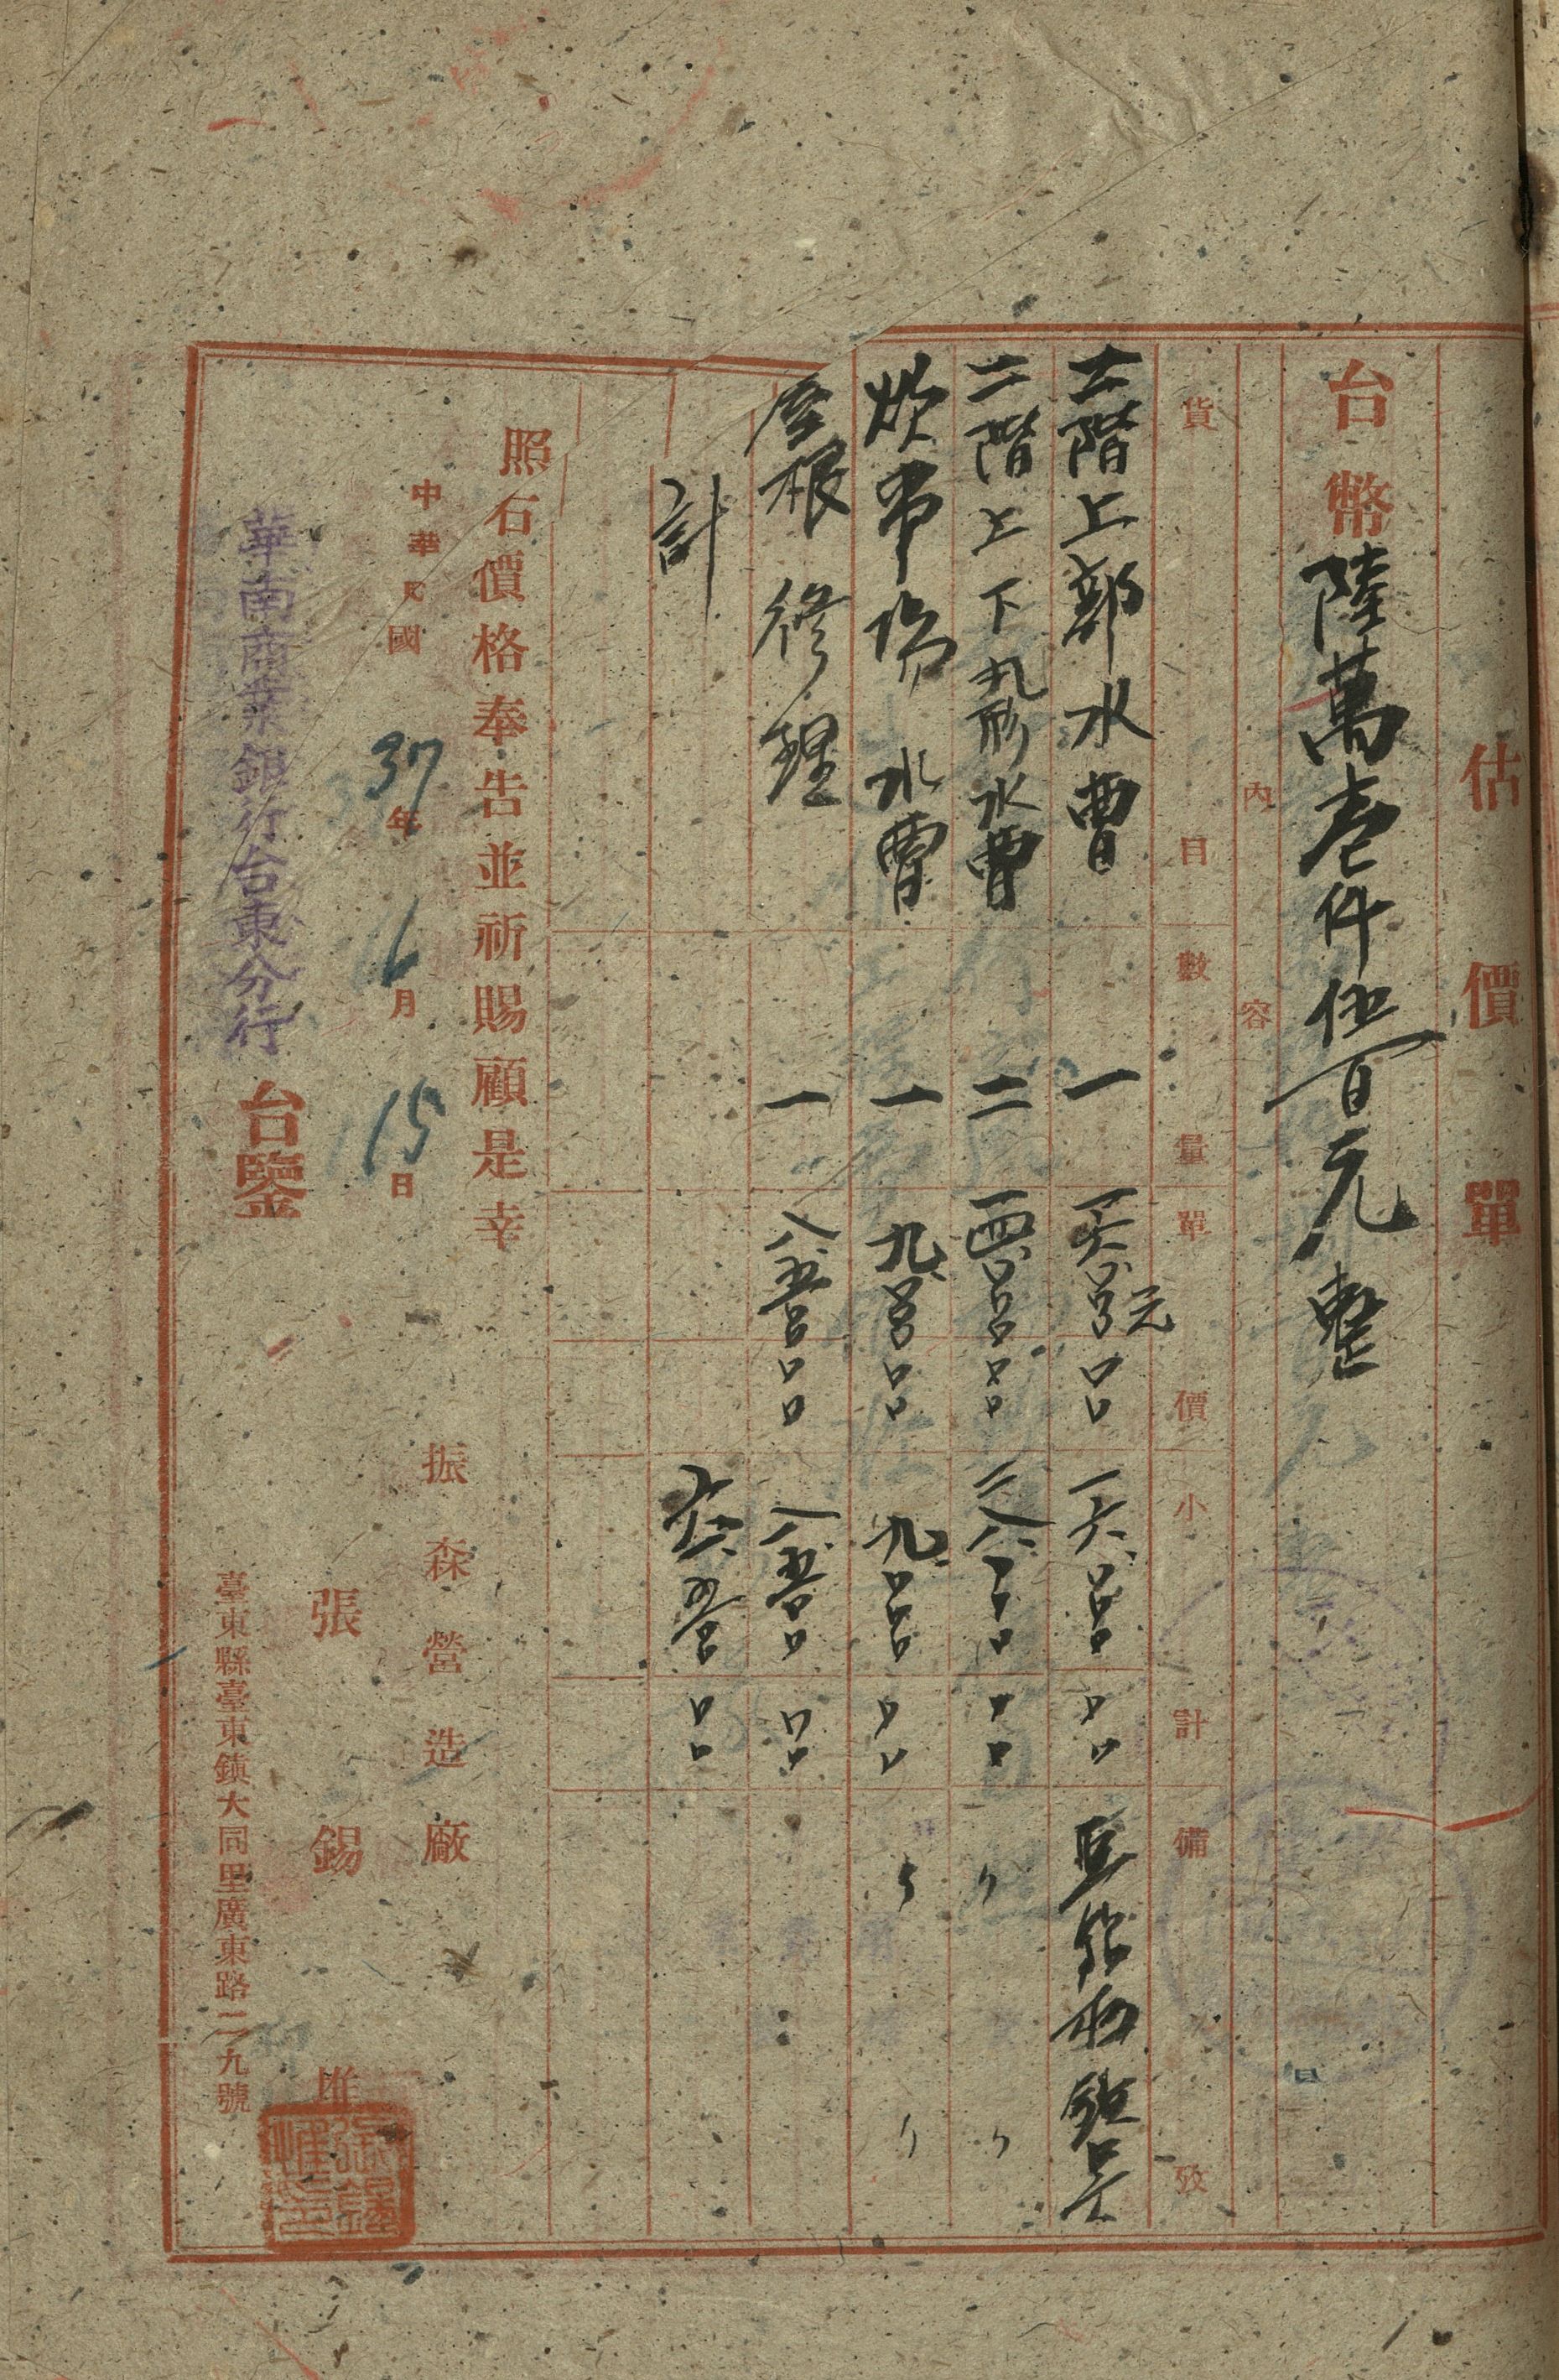 估價單
台幣陸萬壹仟伍百元整
內容
貨目 數量 單價 小計 備攷
二階上部水曹 一 一六、〇〇〇元〇〇 一六、〇〇〇〇〇
二階上下丸形水曹 二 一四、〇〇〇〇〇 二八、〇〇〇〇〇 〃 〃
炊事場水曹 一 九、〇〇〇〇〇 九、〇〇〇〇〇 〃 〃
屋根修理 一 八、五〇〇〇〇 八、五〇〇〇〇
計 六一、五〇〇〇〇
照石價格奉告並祈賜顧是幸
振森營造廠
中華民國37年6月15日
張錫惟
華南商業銀行台東分行 台鑒
臺東縣臺東鎮大同里廣東路二九號